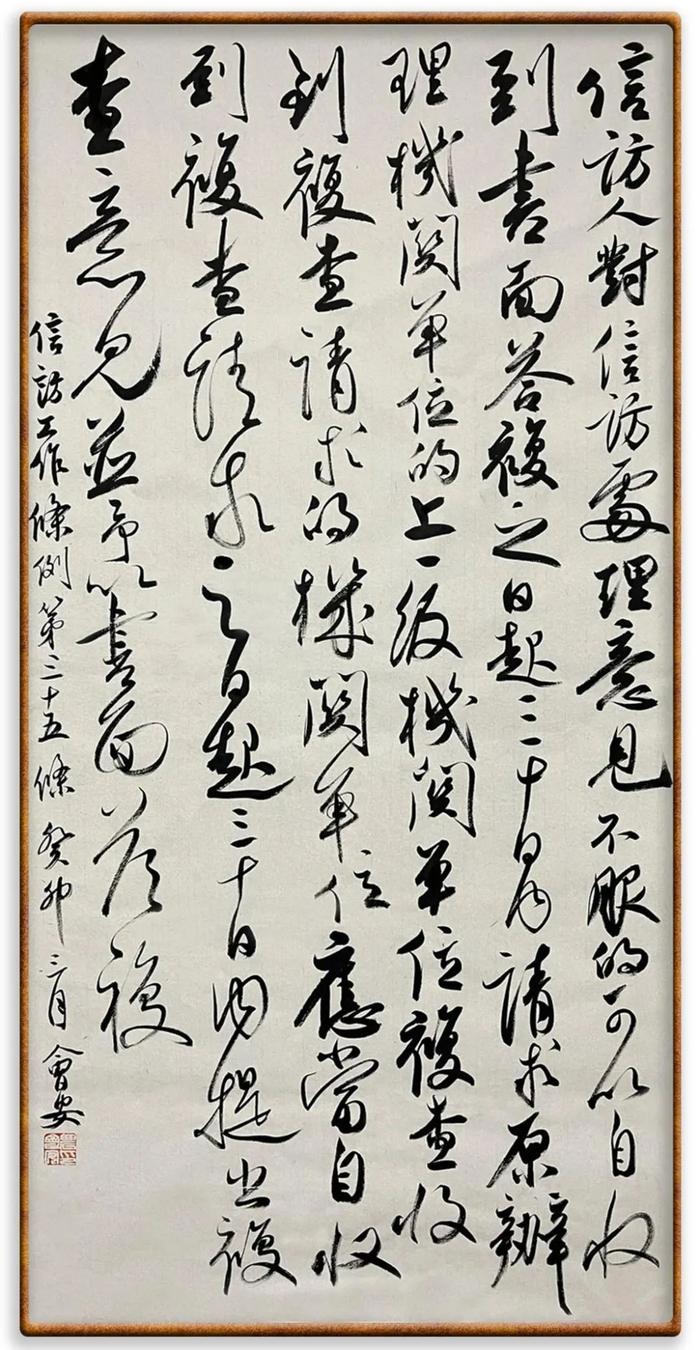 信訪人對信訪處理意見不服的可以自收
到書面答複之日起三十日內請求原辦
理機關單位的上一級機關單位複查收
到複查請求的機關單位應當自收
到複查請求之日起三十日內提出複
查意見並予以書面答複
信訪工作條例第三十五條 癸卯三月 會安